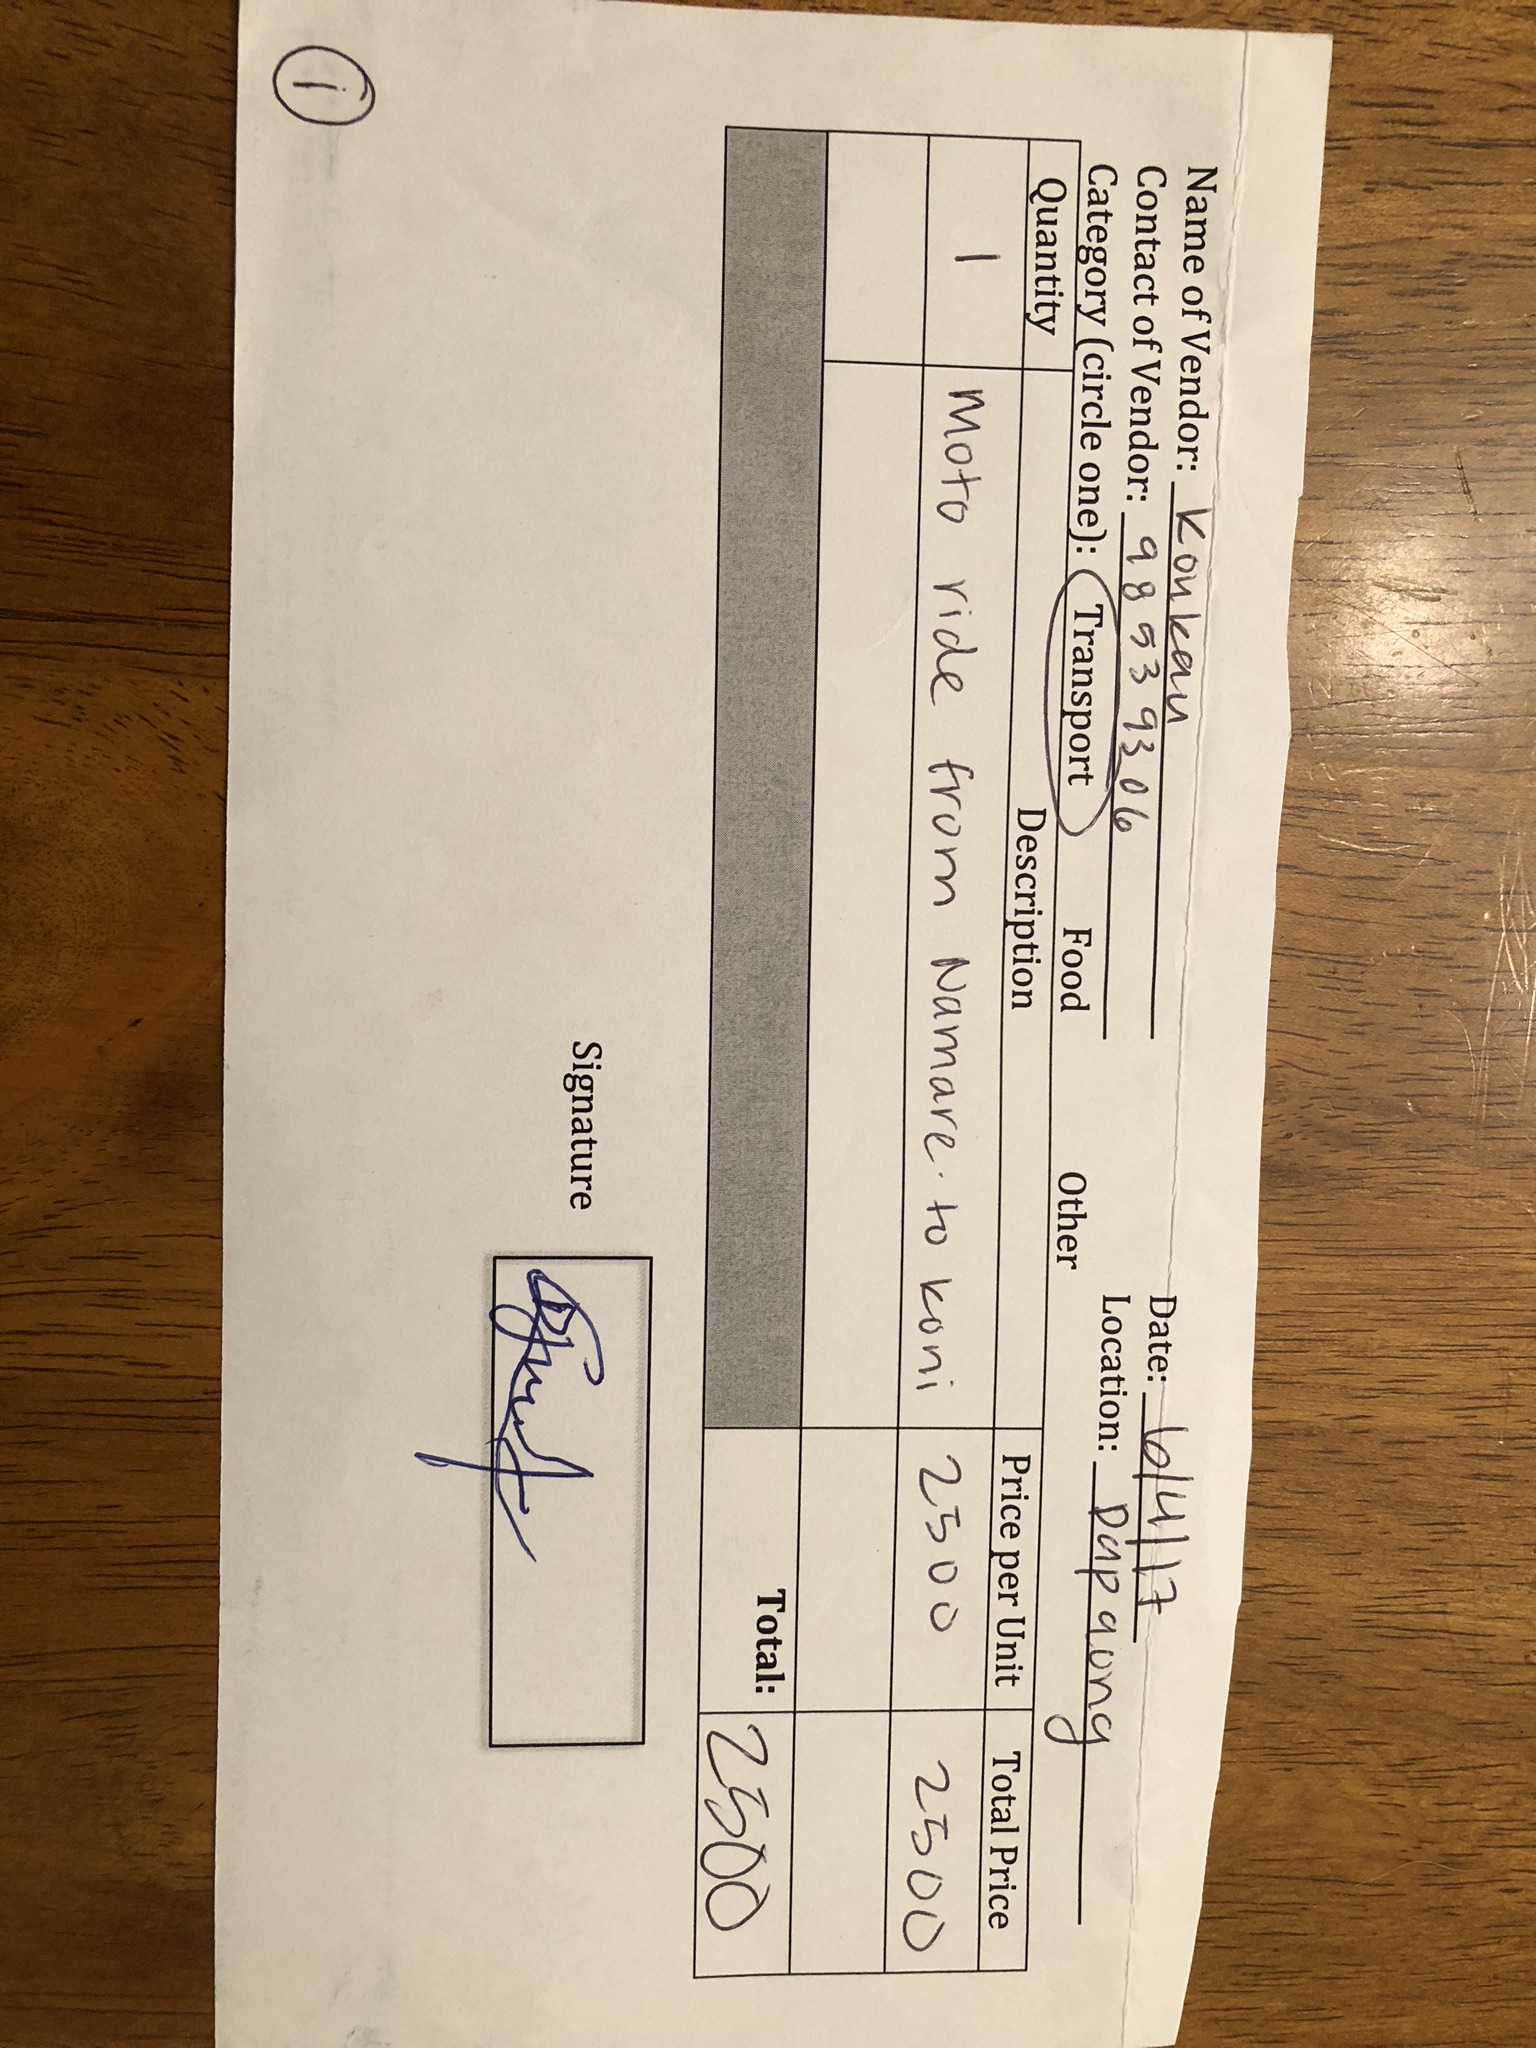 Name of Vendor: Konkan Date: 6/4/17
Contact of Vendor: 98 53 93 06 Location: Dapaong
Category (circle one): Transport Food Other
Quantity Description Price per Unit Total Price
1 Moto ride from Namare to Koni 2500 2500
Total: 2500
Signature
1